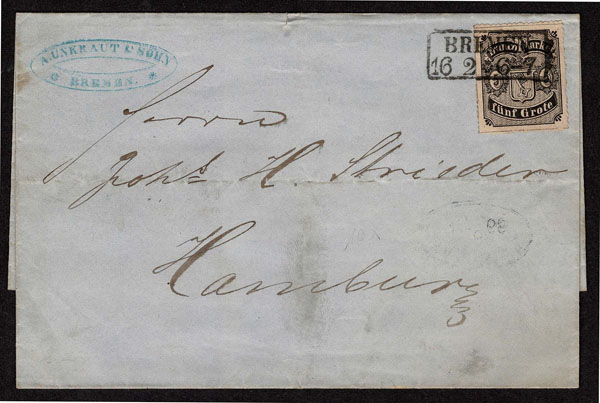 A. UNKRAUT & SOHN
BREMEN.
BREMEN
16 2 6-7
Franco Marke
fünf Grote
Herrn
Joh.s H. Strieder
Hamburg